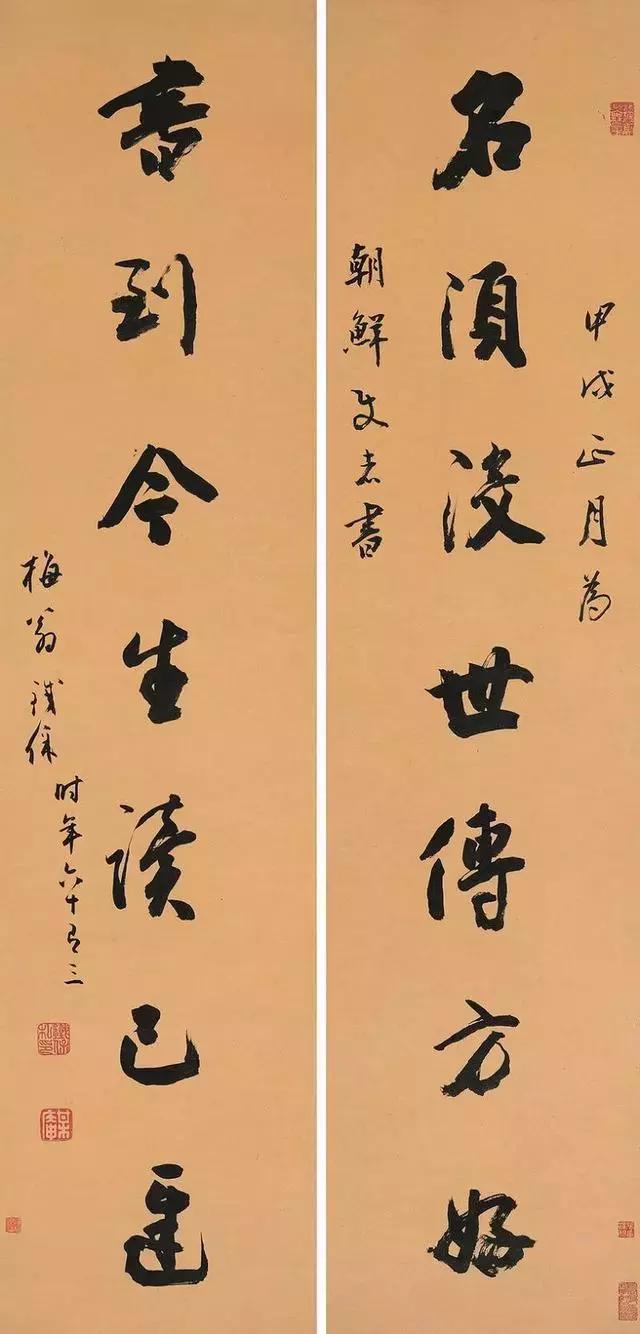 甲戌正月為
名須後世傳方好
朝鮮書
書到今生讀已遲
梅翁鐵保
時年六十有三
鐵保私印